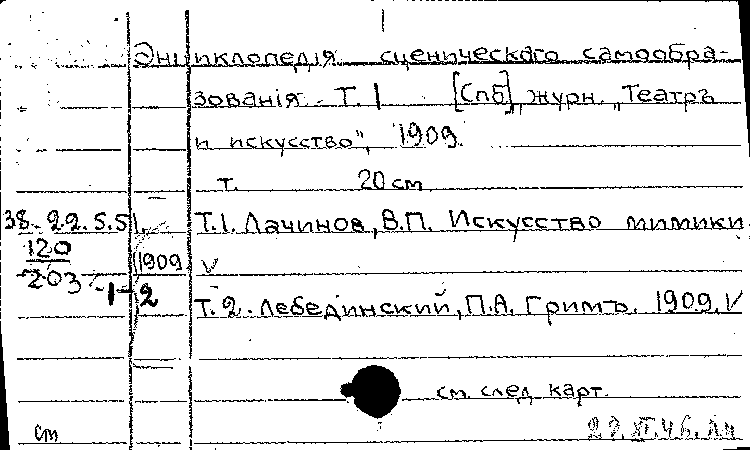 Энциклопедія сценическаго самообра-
зованія. Т. 1 [Спб], журн. „Театръ
и искусство", 1909.
т. 20 см
38-22.5.5 1. Т.1. Лачинов, В.П. Искусство мимики
120 1909 V
203 -1-2
Т. 2. Лебединский, П.А. Гримъ. 1909. V
см. след. карт.
ст 27.XI.46.